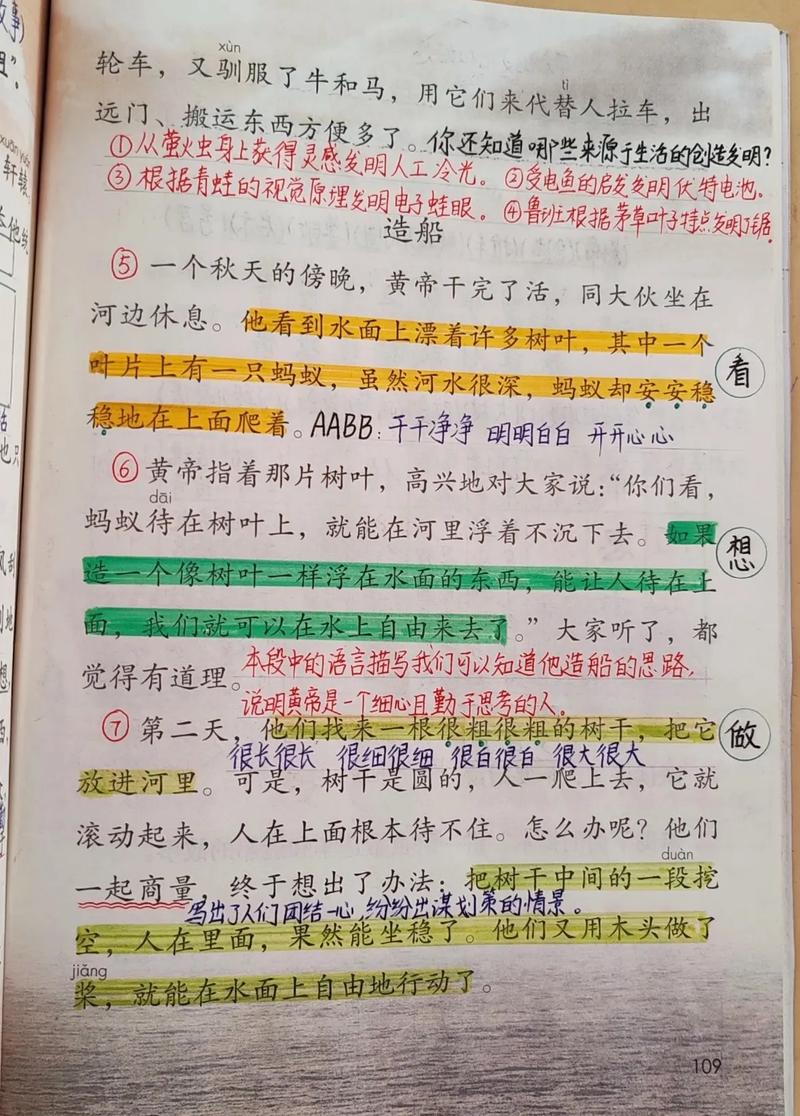 事)
xùn
轮车，又驯服了牛和马，用它们来代替人拉车，出
tì
远门、搬运东西方便多了。你还知道哪些来源于生活的创造发明?
①从萤火虫身上获得灵感发明人工冷光。②受电鱼的启发发明伏特电池。
③根据青蛙的视觉原理发明电子蛙眼。④鲁班根据茅草叶子特点发明了锯。
造船
⑤一个秋天的傍晚，黄帝干完了活，同大伙坐在
河边休息。他看到水面上漂着许多树叶，其中一个
叶片上有一只蚂蚁，虽然河水很深，蚂蚁却安安稳
看
稳地在上面爬着。AABB:干干净净 明明白白 开开心心
⑥黄帝指着那片树叶，高兴地对大家说：“你们看，
dāi
蚂蚁待在树叶上，就能在河里浮着不沉下去。如果
想
造一个像树叶一样浮在水面的东西，能让人待在上
面，我们就可以在水上自由来去了。”大家听了，都
觉得有道理。本段中的语言描写我们可以知道他造船的思路，
说明黄帝是一个细心且勤于思考的人。
⑦第二天，他们找来一根很粗很粗的树干，把它
做
很长很长 很细很细 很白很白 很大很大
放进河里。可是，树干是圆的，人一爬上去，它就
滚动起来，人在上面根本待不住。怎么办呢？他们
duàn
一起商量，终于想出了办法：把树干中间的一段挖
写出了人们团结一心，纷纷出谋划策的情景。
空，人在里面，果然能坐稳了。他们又用木头做了
jiǎng
桨，就能在水面上自由地行动了。
109